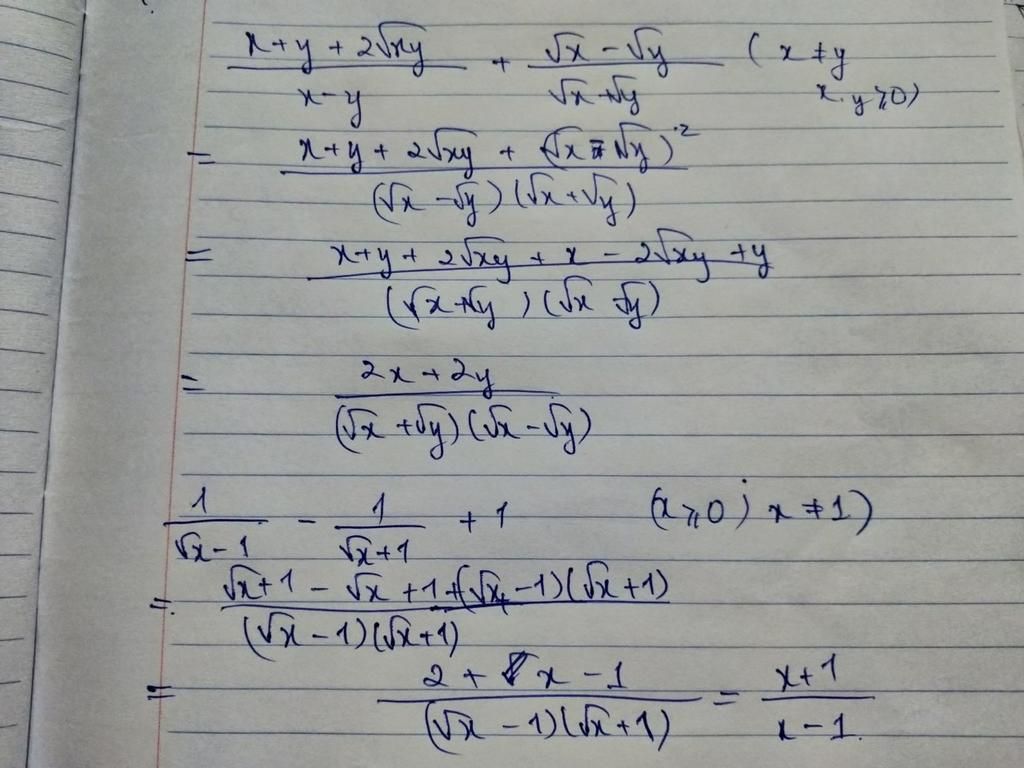 (x+y+2√xy)/(x-y) + (√x-√y)/(√x+√y) (x≠y
x.y≥0)
= (x+y+2√xy+(√x-√y)²)/((√x-√y)(√x+√y))
= (x+y+2√xy+x-2√xy+y)/((√x+√y)(√x-√y))
= (2x+2y)/((√x+√y)(√x-√y))
1/(√x-1) - 1/(√x+1) + 1 (x≥0; x≠1)
= (√x+1-√x+1+(√x-1)(√x+1))/((√x-1)(√x+1))
= (2+x-1)/((√x-1)(√x+1)) = (x+1)/(x-1).